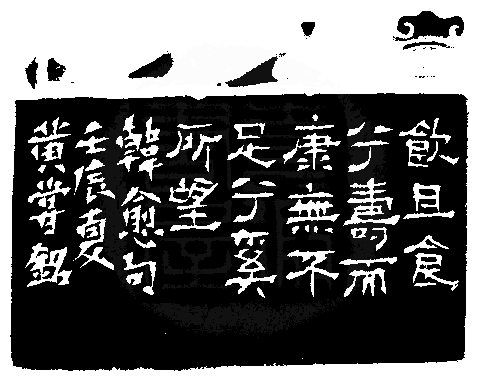 飲且食
兮壽而
康無不
足兮奚
所望
韓愈句
壬辰夏
黃嘗銘